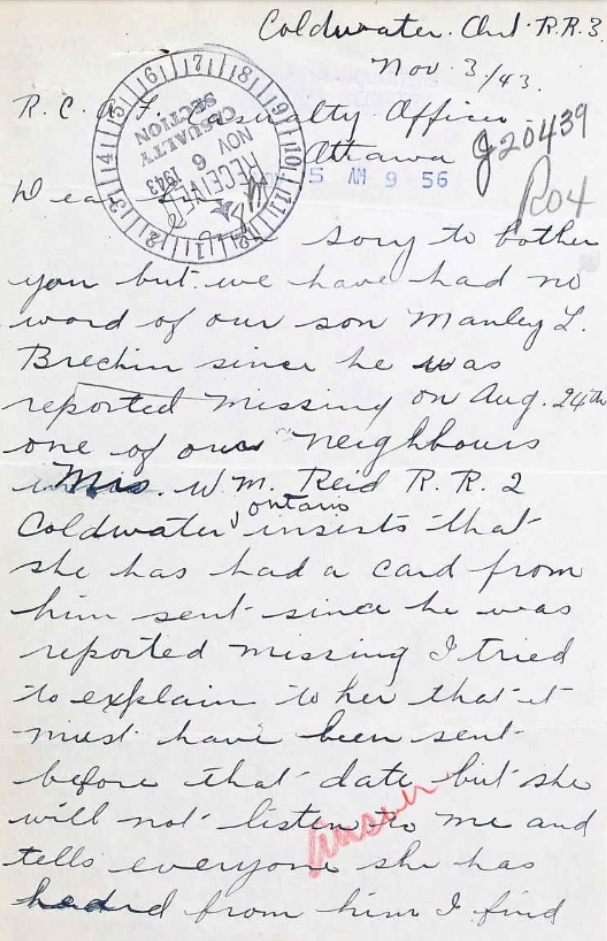 Coldwater. Ont. R.R.3.
Nov. 3/43.
R.C.A.F. Casualty Officer
Ottawa J20439
5 AM 9 56
R04
RECEIVED
NOV 6 1943
CASUALTY SECTION
Dear
sory to bother
you but we have had no
word of our son Manley L.
Brechin since he was
reported missing on Aug. 24th
one of our neighbours
Mrs. W M. Reid R. R. 2
Coldwater, ontario insists that
she has had a card from
him sent since he was
reported missing I tried
to explain to her that it
must have been sent
before that date but she
will not listen to me and
tells everyone she has
heard from him I find